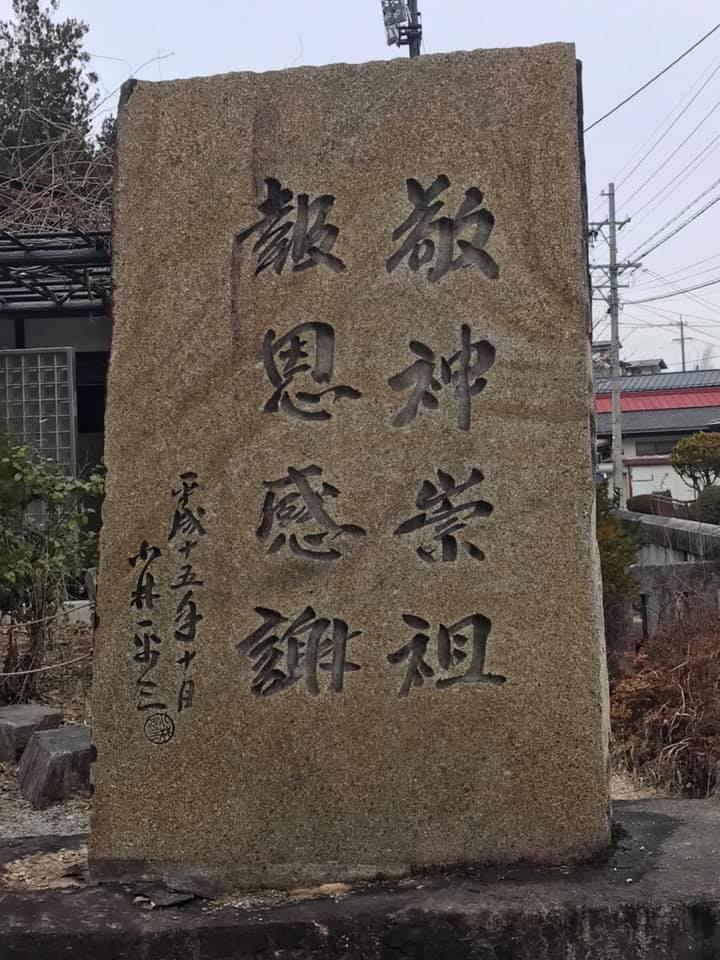 敬神崇祖
報恩感謝
平成十五年十月
小井平三